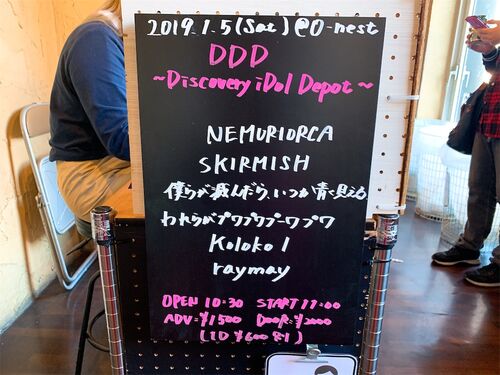 2019.1.5(Sat) @O-nest
DDD
~Discovery iDol Depot~
NEMURIORCA
SKIRMISH
僕らが死んだら、いつか青く見える
われらがプワプワプーワプワ
Koloko!
raymay
OPEN 10:30 START 11:00
ADV=¥1500 DOOR=¥2000
(1D ¥600別)